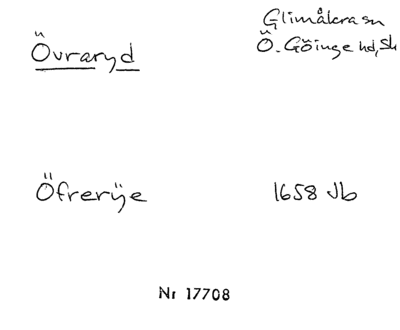 Övraryd
Glimåkra sn
Ö. Göinge hd, Sk
Öfrerÿe
1658 Jb
Nr 17708